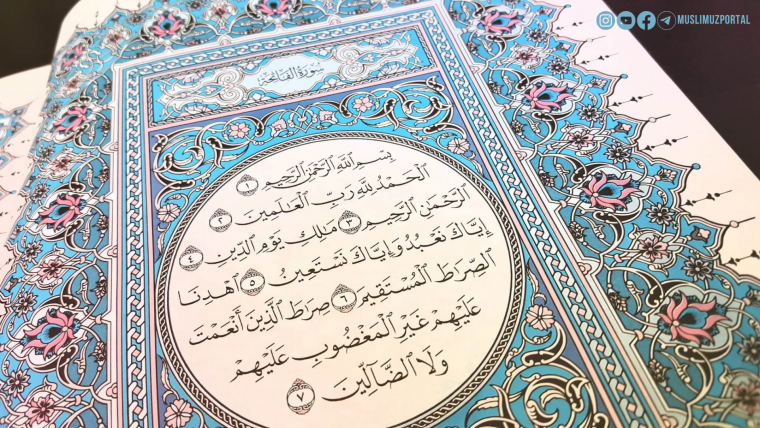 MUSLIMUZPORTAL
سُورَةُ الفَاتِحَةِ
بِسْمِ ٱللَّهِ ٱلرَّحْمَٰنِ ٱلرَّحِيمِ ١
ٱلْحَمْدُ لِلَّهِ رَبِّ ٱلْعَٰلَمِينَ ٢
ٱلرَّحْمَٰنِ ٱلرَّحِيمِ ٣ مَٰلِكِ يَوْمِ ٱلدِّينِ ٤
إِيَّاكَ نَعْبُدُ وَإِيَّاكَ نَسْتَعِينُ ٥ ٱهْدِنَا
ٱلصِّرَٰطَ ٱلْمُسْتَقِيمَ ٦ صِرَٰطَ ٱلَّذِينَ أَنْعَمْتَ
عَلَيْهِمْ غَيْرِ ٱلْمَغْضُوبِ عَلَيْهِمْ
وَلَا ٱلضَّآلِّينَ ٧